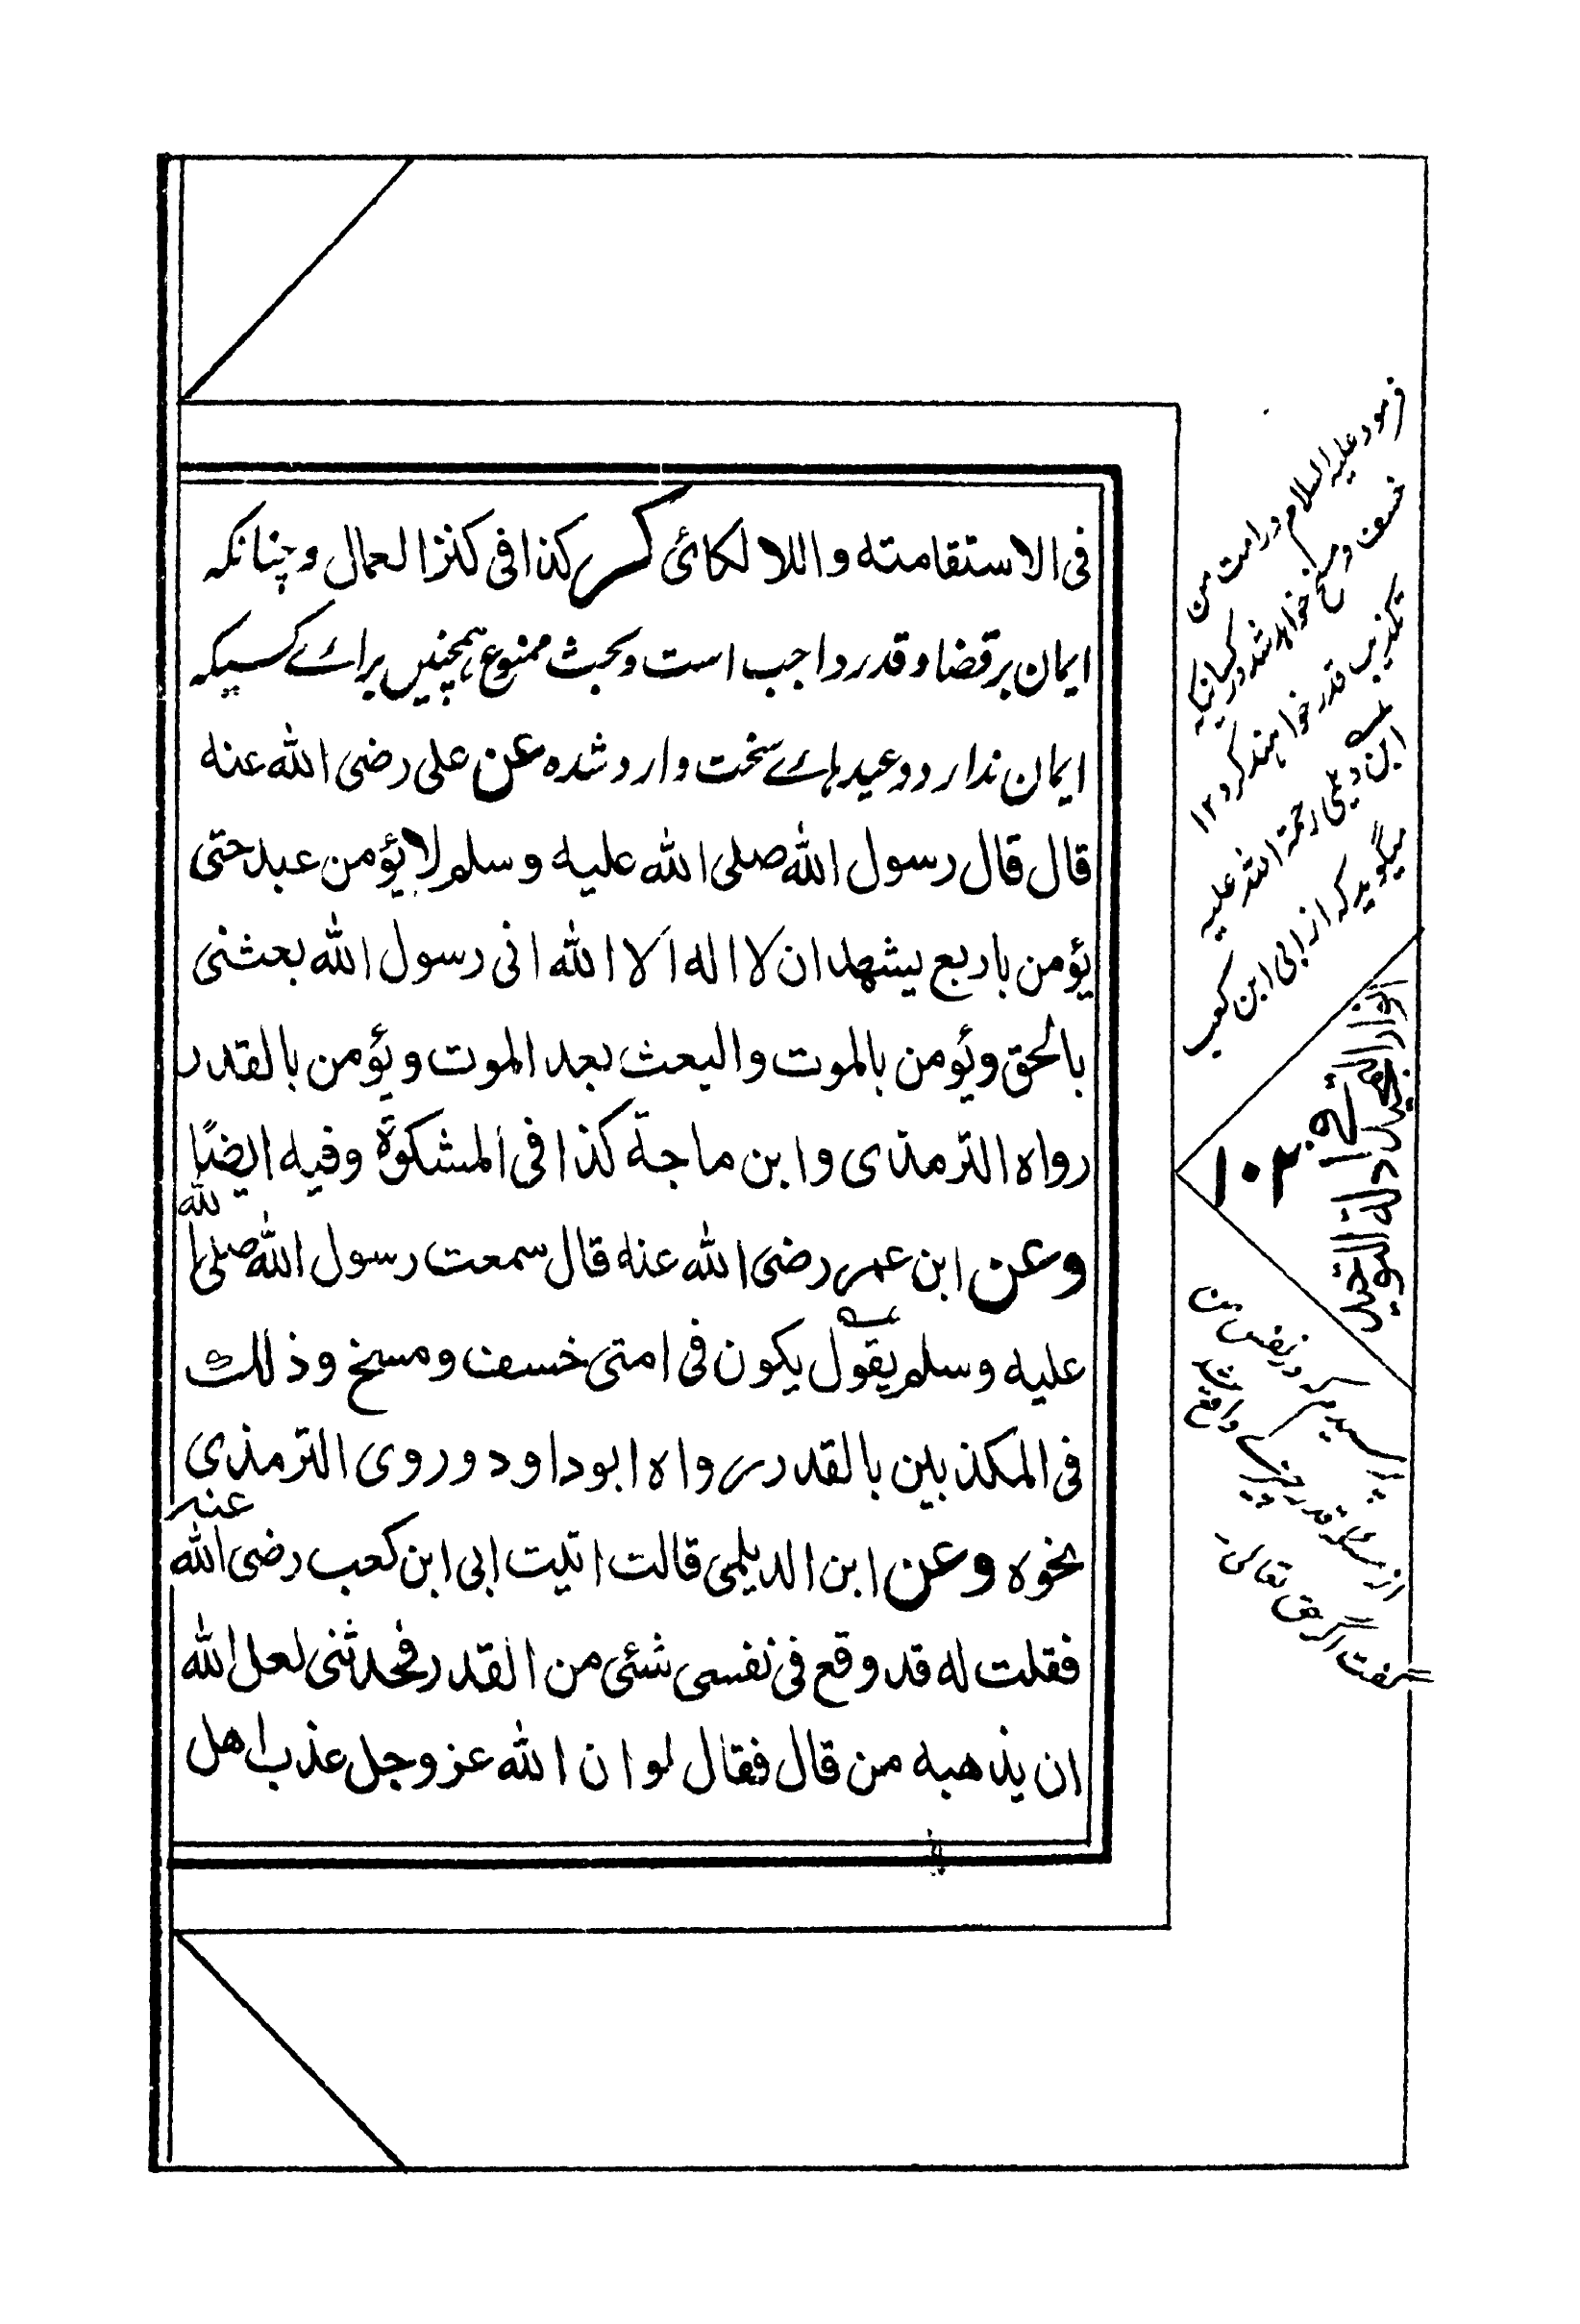 فی الاستقامته واللالکائی کر کذا فی کنزالعمال و چنانکه
ایمان بر قضا و قدر واجب است و بحث ممنوع همچنیں براۓ کسیکه
ایمان ندارد وعیدہاۓ سخت وارد شده عن علی رضی الله عنه
قال قال رسول الله صلی الله علیه وسلم لا یؤمن عبد حتی
یؤمن باربع یشهد ان لا اله الا الله انی رسول الله بعثنی
بالحق ویؤمن بالموت والبعث بعد الموت ویؤمن بالقدر
رواه الترمذی وابن ماجة کذا فی المشکوٰة وفیه ایضًا
وعن ابن عمر رضی الله عنه قال سمعت رسول الله صلی الله
علیه وسلم یقول یکون فی امتی خسف ومسخ وذلك
فی المکذبین بالقدر رواه ابوداود وروی الترمذی
نحوه وعن ابن الدیلمی قالت اتیت ابی ابن کعب رضی الله عنه
فقلت له قد وقع فی نفسی شئی من القدر فحدثنی لعل الله
ان یذهبه من قال فقال لو ان الله عز وجل عذب اهل
فرمود علیه السلام در امت من
خسف و مسخ خواهد شد و در کسانیکه
تکذیب قدر خواهند کرد ۱۲
ابن دیلمی رحمة الله علیه
میگوید که از ابی ابن کعب
ادلة التوحید
۱۰۲
پرسیدم که در نفس من
از مسئله قدر چیزے واقع
گفت اگر حق تعالیٰ